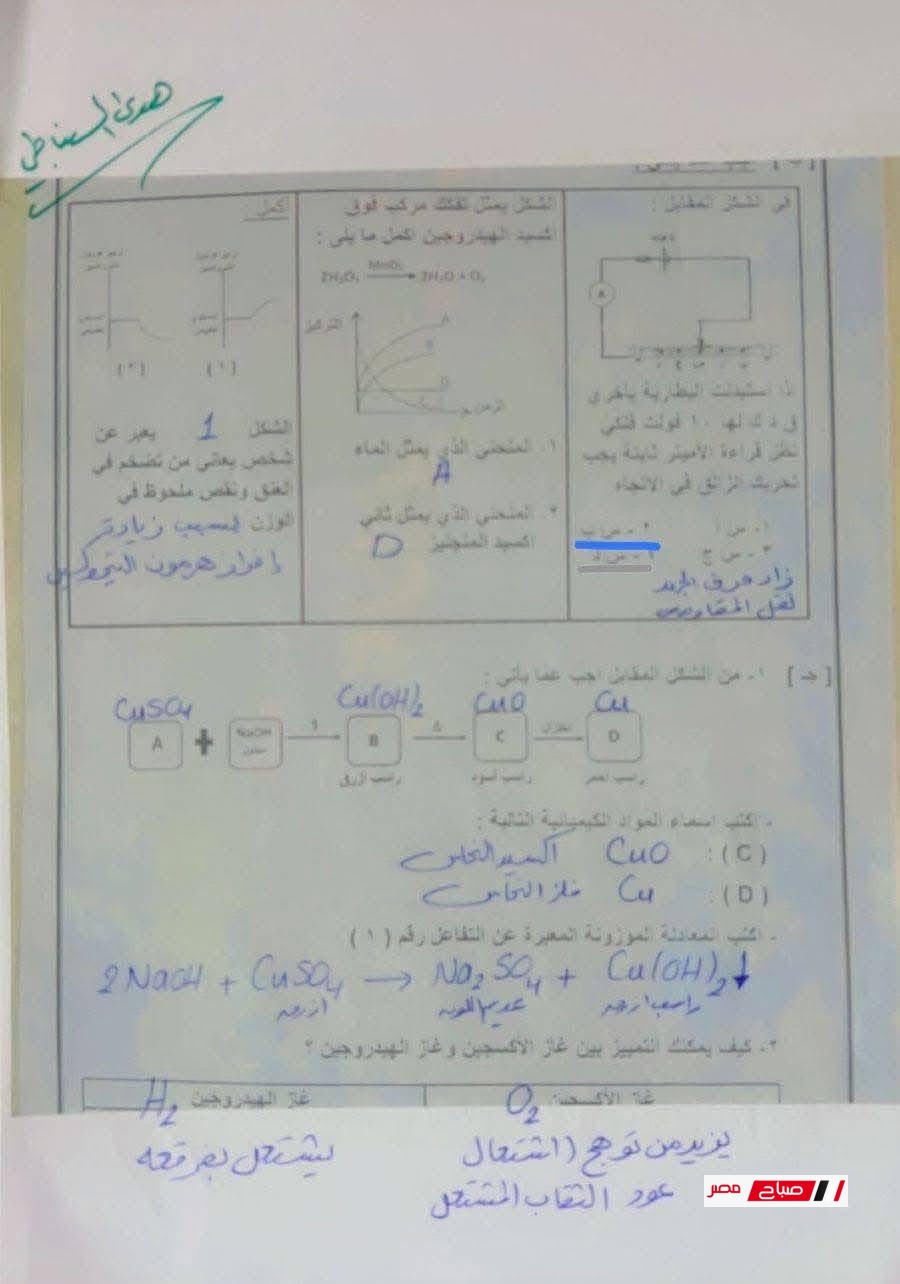 هدى السنباطي
في الشكل المقابل :
A
اذا استبدلت البطارية بأخرى
ق د ك لها ١٠ فولت فلكي
تظل قراءة الأميتر ثابتة يجب
تحريك الزالق في الاتجاه
١- س أ
٢- س ب
٣- س ج
٤- س د
زاد فرق الجهد
لقل المقاومة
الشكل يمثل تفكك مركب فوق
اكسيد الهيدروجين اكمل ما يلي :
2H₂O₂ MnO₂ 2H₂O + O₂
التركيز
A
B
D
C
الزمن
١. المنحنى الذي يمثل الماء
A
٢. المنحنى الذي يمثل ثاني
اكسيد المنجنيز D
أكمل
(١)
(٢)
الشكل 1 يعبر عن
شخص يعاني من تضخم في
العنق ونقص ملحوظ في
الوزن بسبب زيادة
إفراز هرمون الثيروكسين
[ جـ ] ١- من الشكل المقابل اجب عما يأتي :
CuSO4 Cu(OH)2 CuO Cu
A + NaOH محلول 1 B Δ C اختزال D
راسب أزرق
راسب أسود
راسب احمر
- اكتب اسماء المواد الكيميائية التالية :
( C ) : CuO أكسيد النحاس
( D ) : Cu فلز النحاس
- اكتب المعادلة الموزونة المعبرة عن التفاعل رقم ( ١ )
2NaOH + CuSO4 → Na2SO4 + Cu(OH)2↓
أزرق
عديم اللون
راسب أزرق
٢- كيف يمكنك التمييز بين غاز الأكسجين وغاز الهيدروجين ؟
غاز الأكسجين O2
غاز الهيدروجين H2
يزيد من توهج (اشتعال
عود الثقاب المشتعل
يشتعل بفرقعة
صباح مصر